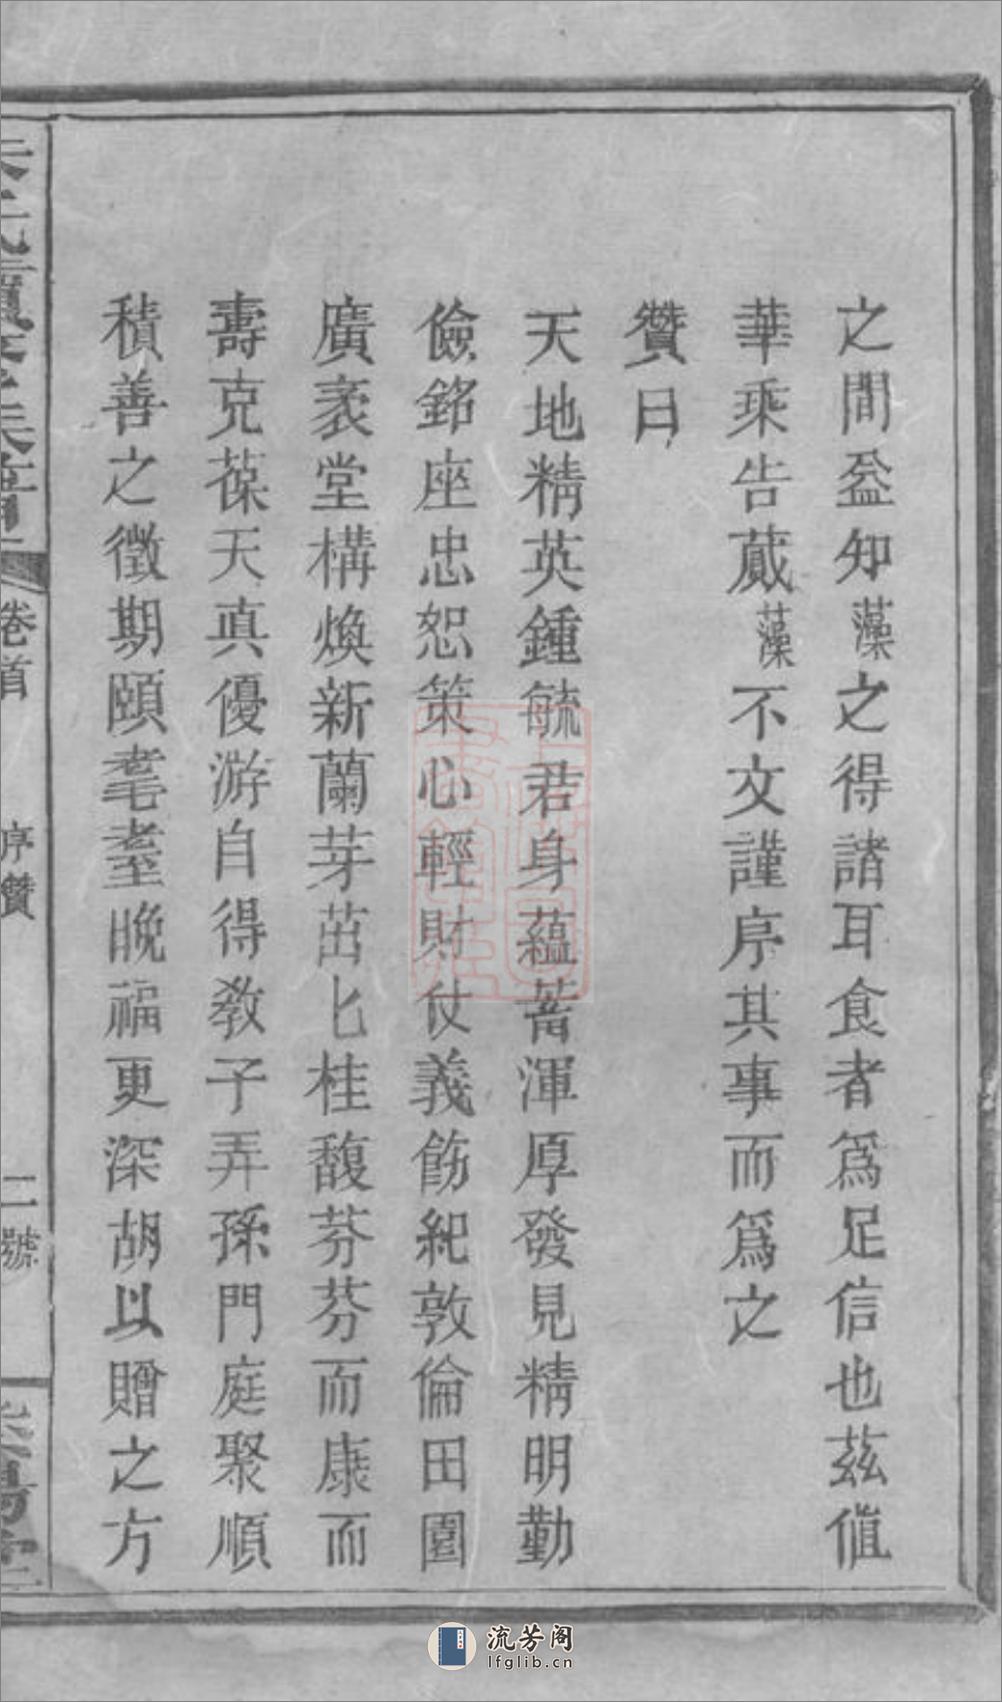 之間益知藻之得諸耳食者爲足信也茲值
華乘告蕆藻不文謹序其事而爲之
贊曰
天地精英鍾毓君身蘊蓄渾厚發見精明勤
儉銘座忠恕策心輕財仗義飭紀敦倫田園
廣袤堂構煥新蘭芽茁匕桂馥芬芬而康而
壽克葆天真優游自得教子弄孫門庭聚順
積善之徵期頤耄耋晚福更深胡以贈之方
卷首
序贊
二號
流芳阁
lfglib.cn